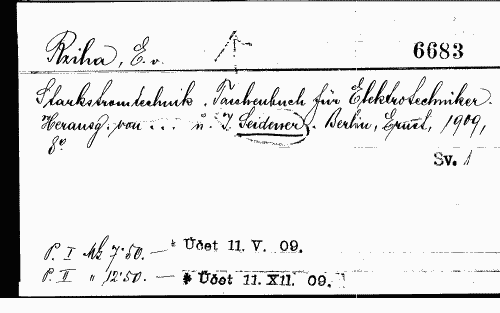 Rziha, E. v.
6683
Starkstromtechnik. Taschenbuch für Elektrotechniker.
Herausg. von ... u. J. Seidener. Berlin, Ernst, 1909,
8°
Sv. 1
P. I Mk 7·50. — * Účet 11. V. 09.
P. II " 12·50. — * Účet 11. XII. 09.